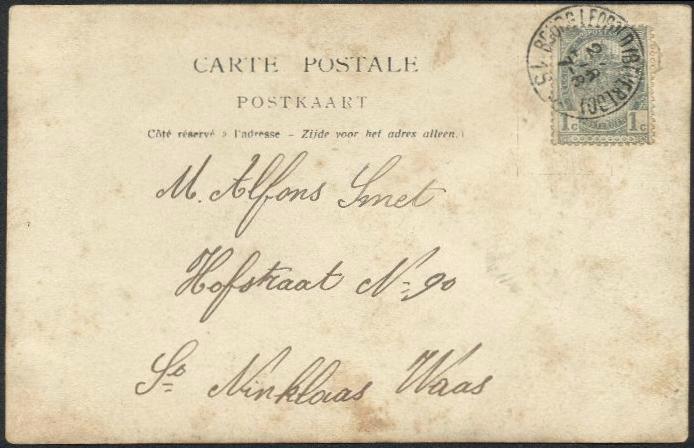 CARTE POSTALE
POSTKAART
Côté réservé à l'adresse - Zijde voor het adres alleen.
M. Alfons Smet
Hofstraat No 90
St Ninklaas Waas
BOURG-LEOPOLD (BEVERLOO)
1c 1c